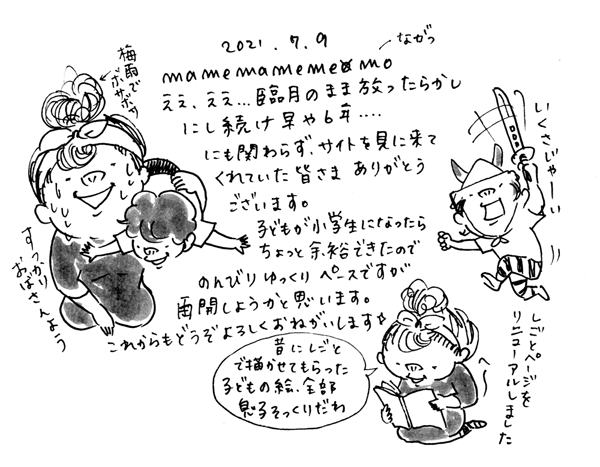 2021.7.9
mamemamememomo
ながっ
ええ、ええ…臨月のまま放ったらかし
にし続け早や6年‥‥
にも関わらず、サイトを見に来て
くれていた皆さま ありがとう
ございます。
子どもが小学生になったら
ちょっと余裕できたので
のんびりゆっくり ペースですが
再開しようかと思います。
これからもどうぞよろしくおねがいします
梅雨で
ボサボサ
すっかり
おばさんよう
いくさじゃーい
昔にしごと
で描かせてもらった
子どもの絵、全部
息子そっくりだわ
へ〜
しごとページを
リニューアルしました